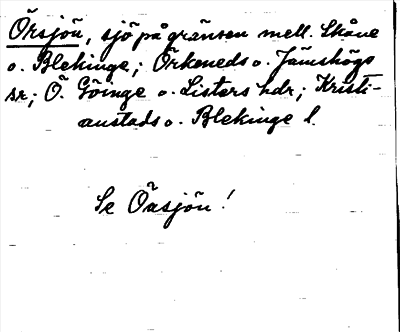 Örsjön, sjö på gränsen mell. Skåne
o. Blekinge; Örkeneds o. Jämshögs
sr; Ö. Göinge o. Listers hdr; Kristi-
anstads o. Blekinge l.
Se Öasjön!